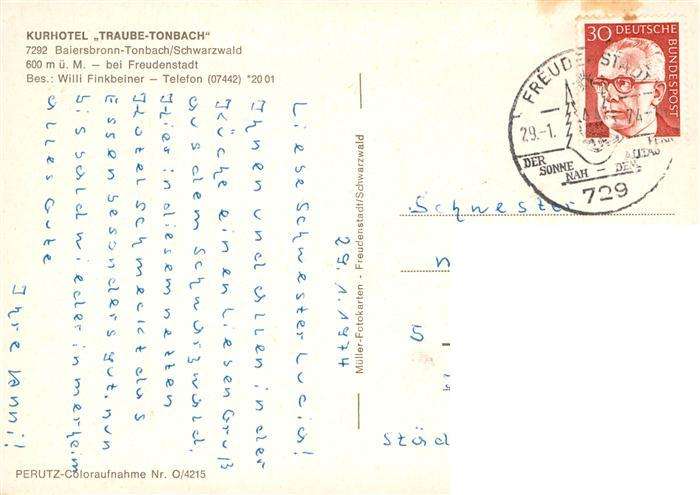 KURHOTEL „TRAUBE-TONBACH“
7292 Baiersbronn-Tonbach/Schwarzwald
600 m ü. M. — bei Freudenstadt
Bes.: Willi Finkbeiner — Telefon (07442) *20 01
29.1.1974
Liebe Schwester Lucia!
Ihnen und allen in der
Küche einen lieben Gruß
aus dem Schwarzwald.
Hier in diesem netten
Hotel schmeckt das
Essen besonders gut. nun
bis bald wieder in merheim
alles Gute
Ihre
PERUTZ-Coloraufnahme Nr. O/4215
Müller-Fotokarten - Freudenstadt/Schwarzwald
30 DEUTSCHE
BUNDESPOST
FREUDENSTADT
29.-1.
DER
SONNE
NAH — DEM
ALLTAG
FERN
729
Schwester